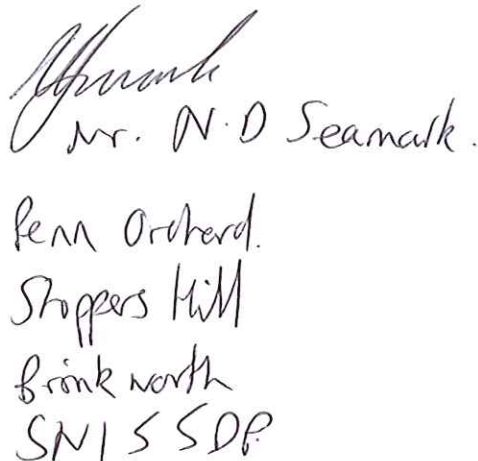 Mr. N.D Seamark.
Penn Orchard.
Stoppers Hill
Brinkworth
SN15 5DP.